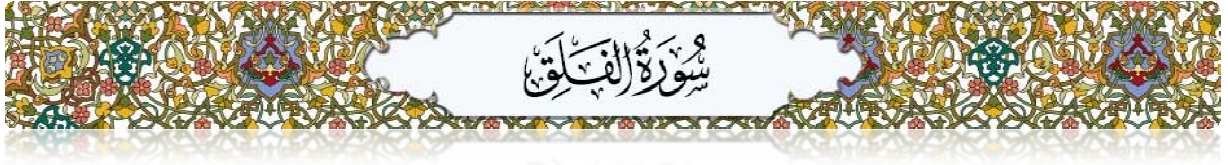 سُورَةُ الفَلَقِ